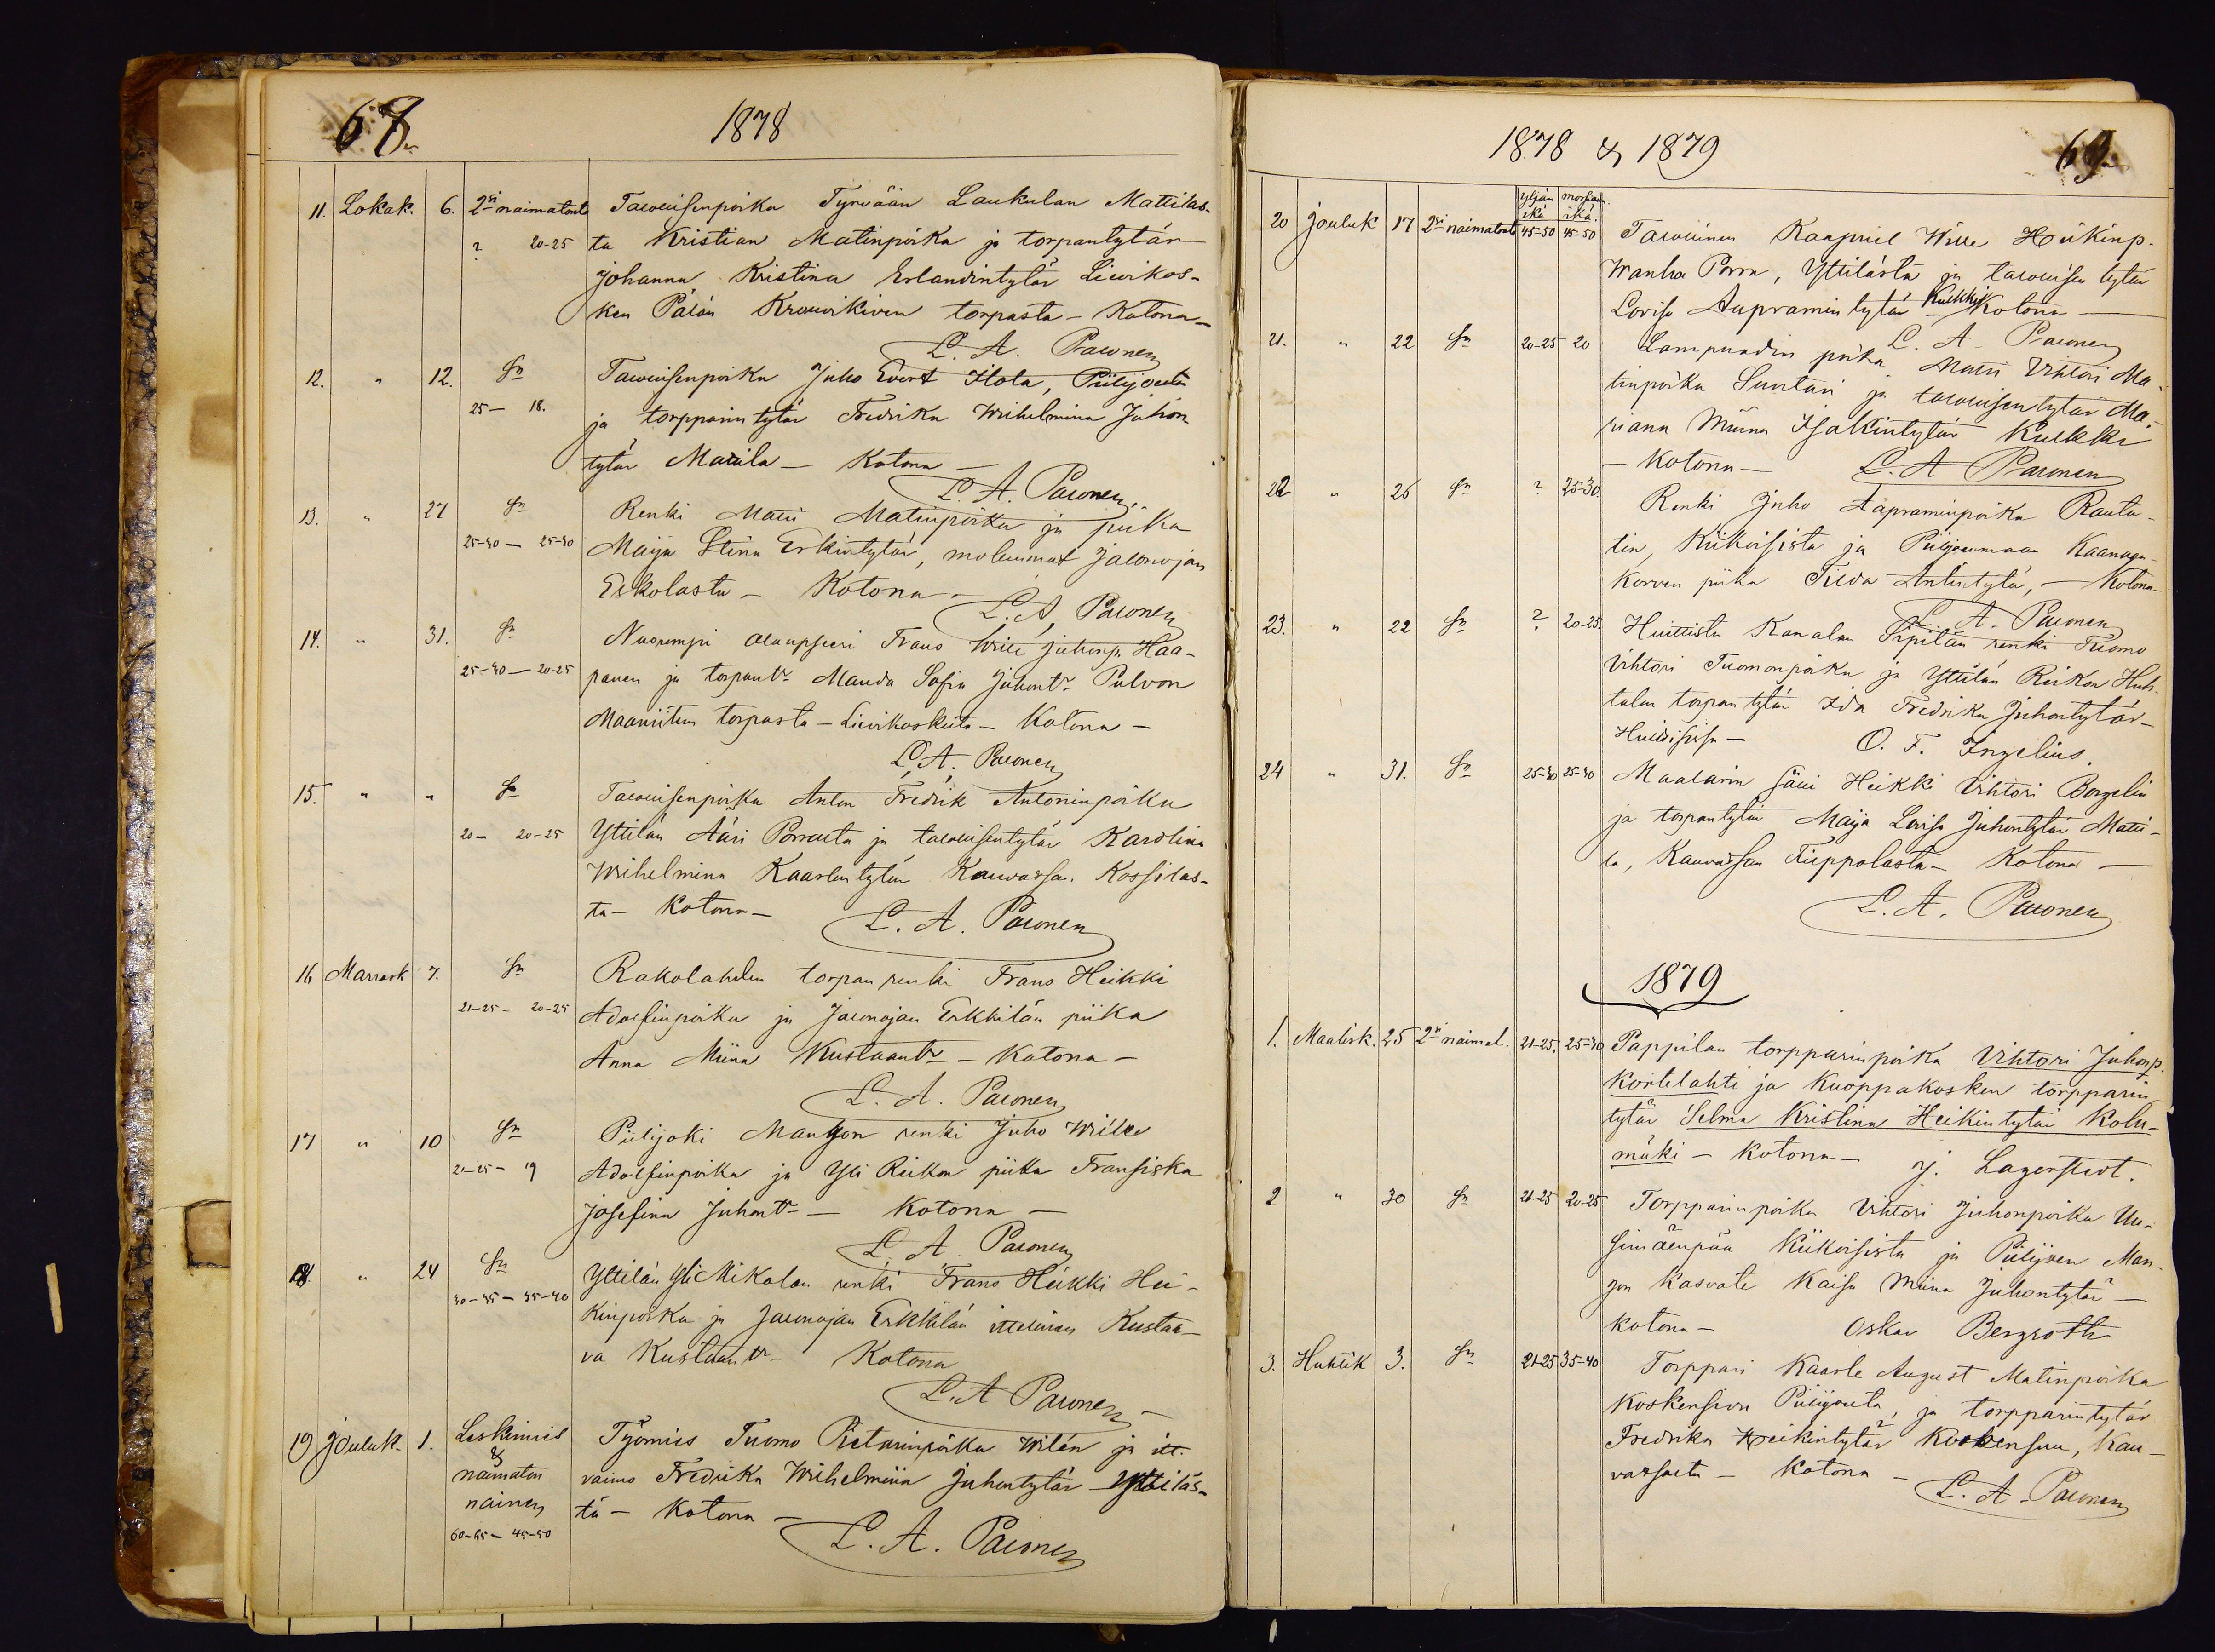 68.
1878
11. Lokak. 6. 2si naimatonta Talollisenpoika Tyrvään Laukulan Mattilas-
? 20-25 ta Kristian Matinpoika ja torpantytär
Johanna Kristina Erlandintytär Liuvikos-
ken Kronvikiven torpasta - Kotona -
L. A. Paronen
12. " 12. Sn Talollisenpoika Juho Evert Ilola, Piilijoelta
25 - 18. ja torpparin tytär Fredrika Wilhelmina Juhon
tytär Mattila - Kotona -
L. A. Paronen
13. " 27 Sn Renki Matti Matinpoika ja piika
25-30 - 25-30 Maija Stina Erkintytär, molemmat Jalonojan
Eskolasta - Kotona -
L. A. Paronen
14. " 31. Sn Nuorempi Frans Wille Juhonp. Haa-
25-30 - 20-25 panen ja torpantr Manda Sofia Juhontr Pulvon
Maaniitun torpasta - Liuvikoskelta - Kotona -
L. A. Paronen
15. " " Sn Talollisenpoika Anton Fredrik Antoninpoika
20 - 20-25 Yttilän Ääri Porrasta ja talollisentytär Karolina
Wilhelmina Kaarlentytär Kauvatsa. Kossilas-
ta - Kotona -
L. A. Paronen
16 Marrask 7. Sn Rakolahden torpan renki Frans Heikki
21-25 - 20-25 Adolfinpoika ja Jalonojan Erkkilän piika
Anna Miina Kustaantr - Kotona -
L. A. Paronen
17 " 10 Sn Piilijoki Mangon renki Juho Wille
21-25 - 19 Adolfinpoika ja Yli Riikon piika Fransiska
Josefina Juhontr - Kotona -
L. A. Paronen
18. " 24 Sn Yttilän Yli Mikolan renki Frans Heikki Hei-
30-35 - 35-40 kinpoika ja Jalonojan Erkkilän itsellinen Kustaa-
va Kustaantr - Kotona
L. A Paronen
19 Jouluk. 1. Leskimies Työmies Tuomo Pietarinpoika Wilén ja itt.
& naimaton vaimo Fredrika Wilhelmiina Juhontytär Yttiläs-
nainen tä - Kotona -
60-65 - 45-50 L. A. Paronen
1878 & 1879
69.
yljän ikä morsiam. ikä.
20 Jouluk 17 2si naimatonta 45-50 45-50 Talollinen Kaapriel Wille Heikinp.
Wanha Porra, Yttilästä ja talollisen tytär
Lovisa Aapramin tytär Kulkki Kotona -
L. A. Paronen
21. " 22 Sn 20-25 20 Lampuodin poika Matti Vihtori Ma-
tinpoika Suntari ja talollisentytär Ma-
riana Miina Isakintytär Kulkki
- Kotona - L. A Paronen
22 " 26 Sn ? 25-30. Renki Juho Aapraminpoika Rauta-
tin, Kiikoisista ja Piilijoenmaan Kaanaan-
korven piika Tilda Antintytär, - Kotona -
L. A. Paronen
23. " 22 Sn ? 20-25. Huittista Kanalan Pipilän renki Tuomo
Vihtori Tuomonpoika ja Yttilän Riikon Huh-
talan torpan tytär Ida Fredrika Juhontytär -
Huittisissa - O. F. Ingelius.
24 " 31. Sn 25-30 25-30 Maalarin sälli Heikki Vihtori Borgelin
ja torpantytär Maija Lovisa Juhontytär Matti-
la, Kauvatsan Tieppolasta - Kotona -
L. A. Paronen
1879
1. Maalisk. 25 2si naimat. 21-25. 25-30 Pappilan torpparinpoika Vihtori Juhonp.
Kortelahti ja Kuoppakosken torpparin
tytär Selma Kristina Heikintytär Kolu-
mäki - Kotona - J. Lagerstedt.
2 " 30 Sn 21-25 20-25 Torpparinpoika Vihtori Juhonpoika Uu-
Kiikoisista ja Piilijoen Man-
gon kasvate Kaisa Miina Juhontytär -
kotona - Oskar Bergroth
3. Huhtik 3. Sn 21-25 35-40 Torppari Kaarle August Matinpoika
Koskensuu Piilijoelta, ja torpparintytär
Fredrika Heikintytär Koskensuu, Kau-
vatsalta - Kotona -
L. A. Paronen